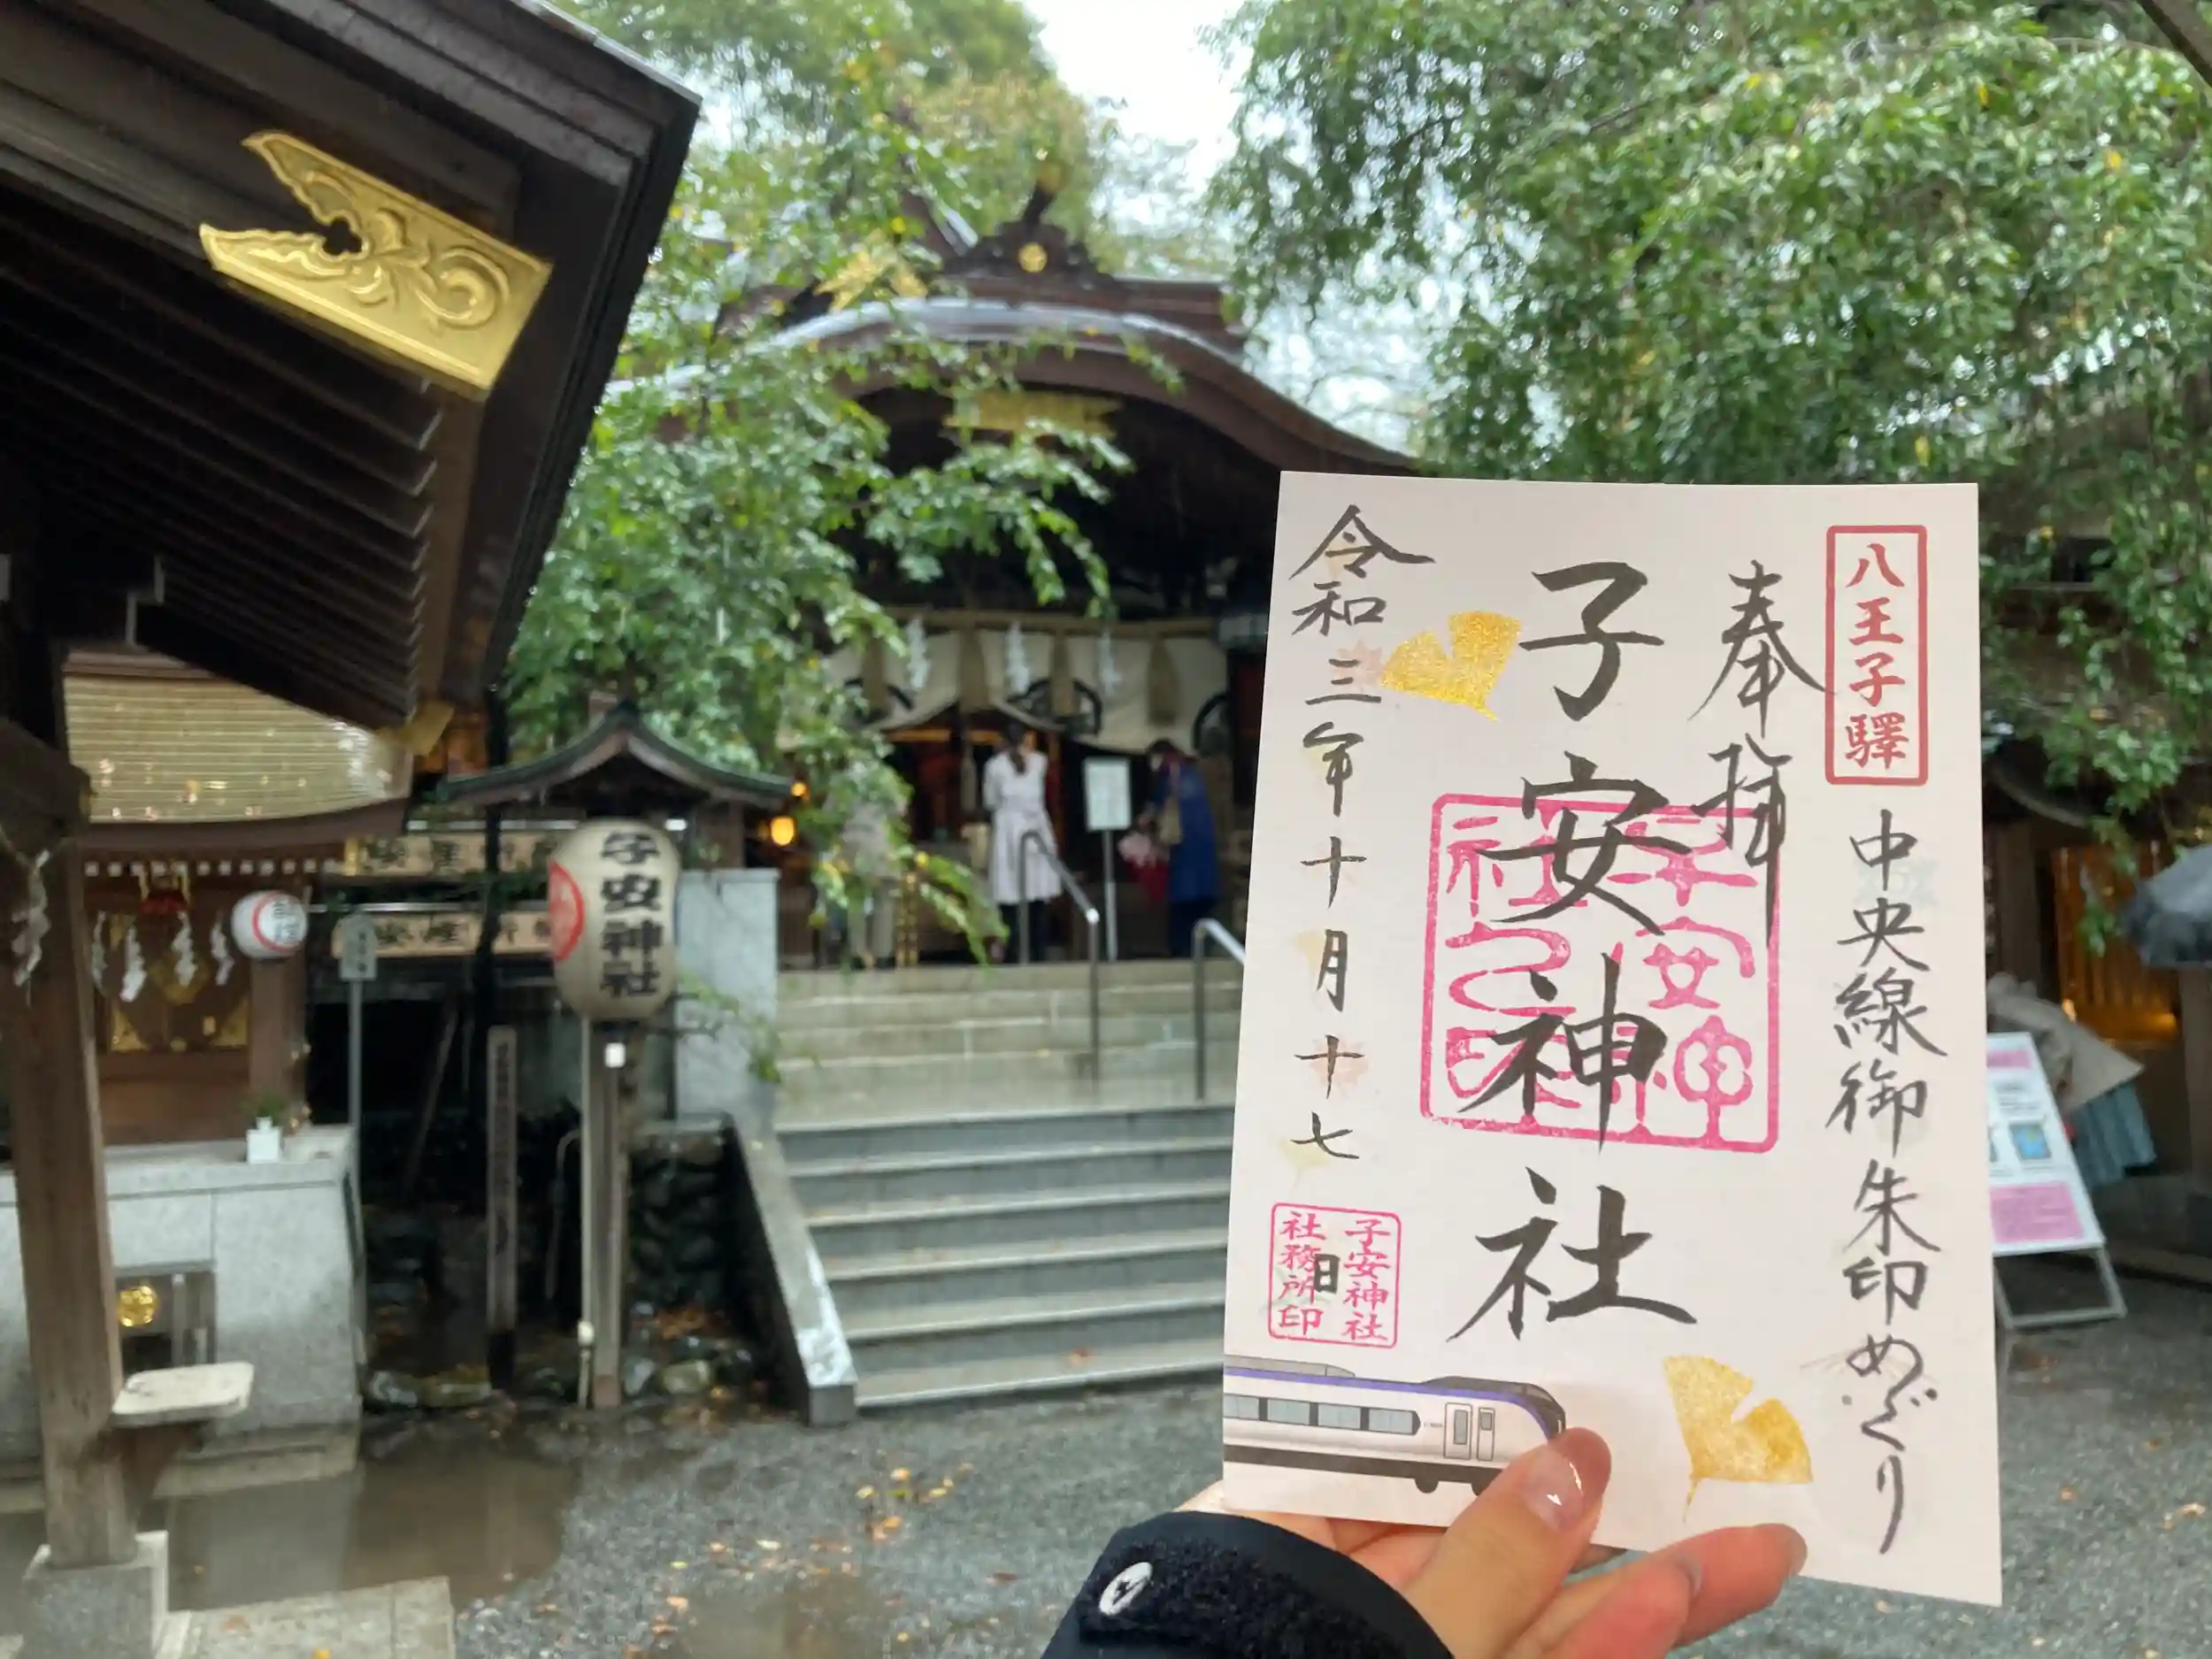 八王子驛
中央線御朱印めぐり
奉拝
子安神社
子安神社之印
令和三年十月十七日
子安神社
社務所印
子安神社